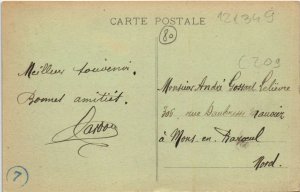 CARTE POSTALE
121349
80
Meilleur souvenir.
Bonnes amitiés.
Monsieur André Gossart Lelièvre
305, rue Daubresse Mauviez
à Mons-en-Barœul
Nord.
7